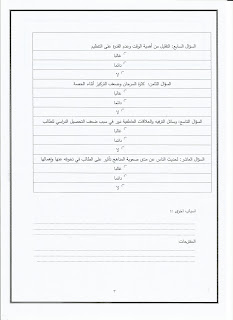 السؤال السابع: التقليل من أهمية الوقت وعدم القدرة على التنظيم
غالبا
دائما
لا
السؤال الثامن: كثرة السرحان وضعف التركيز أثناء الحصة
غالبا
دائما
لا
السؤال التاسع: وسائل الترفيه والعلاقات العاطفية دور في سبب ضعف التحصيل الدراسي للطالب
غالبا
دائما
لا
السؤال العاشر: لحديث الناس عن مدى صعوبة المناهج تأثير على الطالب في تخوفه منها وإهمالها
غالبا
دائما
لا
اسباب أخرى ؟:
المقترحات: